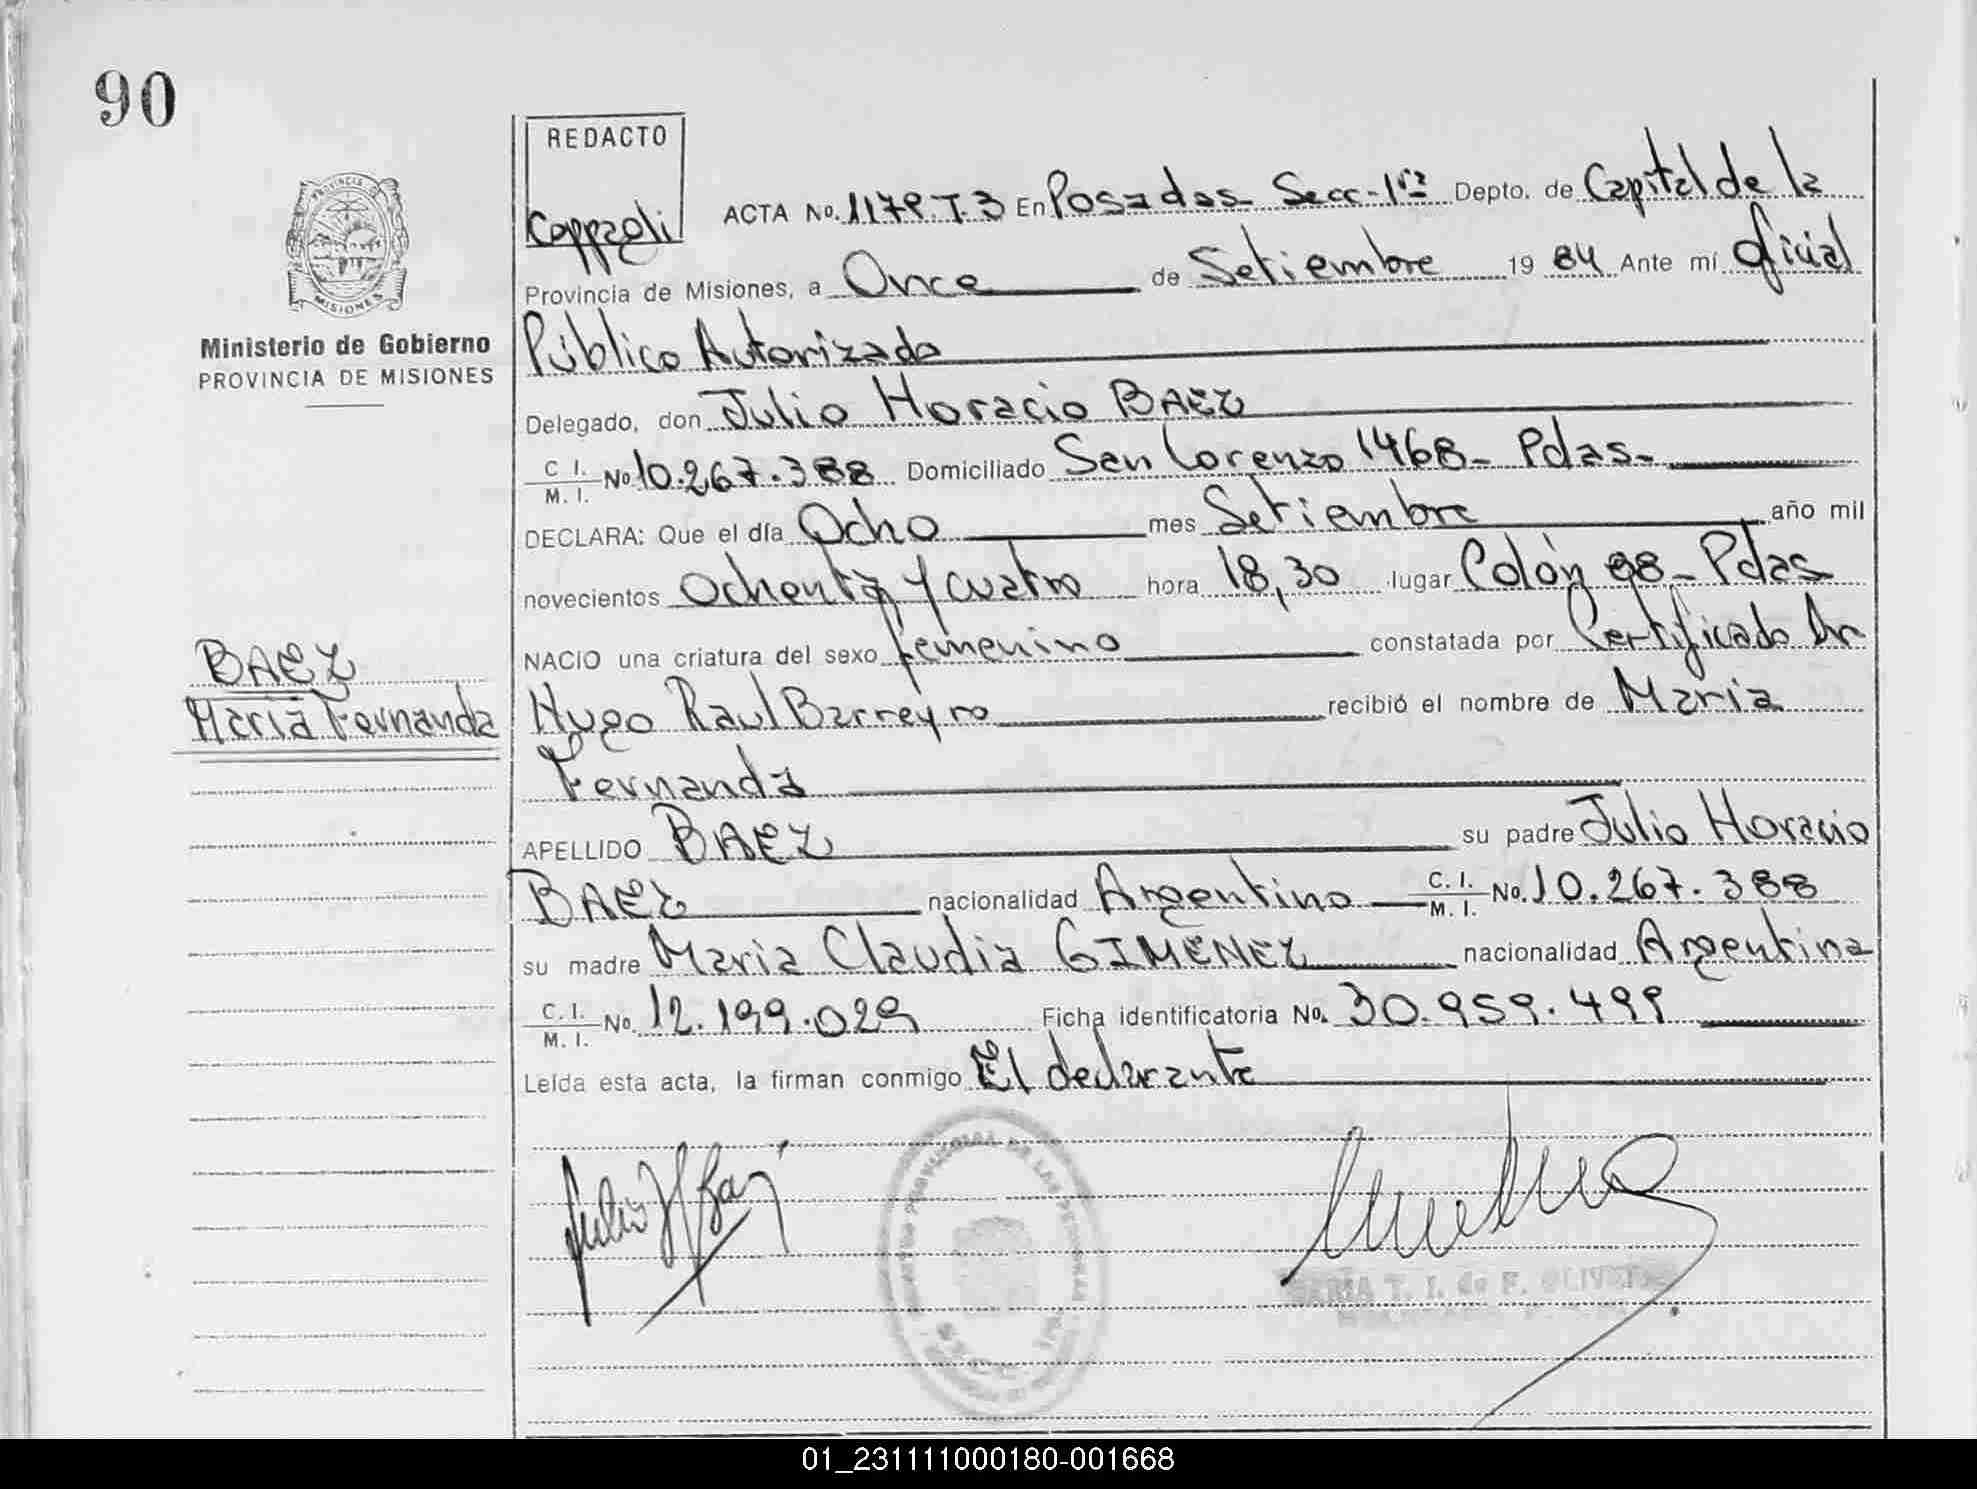 90
REDACTO
Cappzoli
PROVINCIA DE
MISIONES
Ministerio de Gobierno
PROVINCIA DE MISIONES
ACTA No. 1179. T. 3 En Posadas Secc-1ra Depto. de Capital de la
Provincia de Misiones, a Once de Setiembre 19 84 Ante mí Oficial
Público Autorizado
Delegado, don Julio Horacio BAEZ
C. I. M. I. No 10.267.388 Domiciliado San Lorenzo 1468- Pdas-
DECLARA: Que el día Ocho mes Setiembre año mil
novecientos Ochenta y cuatro hora 18,30 lugar Colón 98- Pdas
NACIO una criatura del sexo femenino constatada por Certificado Dr
Hugo Raul Barreyro recibió el nombre de Maria
Fernanda
APELLIDO BAEZ su padre Julio Horacio
BAEZ nacionalidad Argentino C. I. M. I. No. 10.267.388
su madre Maria Claudia GIMENEZ nacionalidad Argentina
C. I. M. I. No. 12.199.029 Ficha identificatoria No. 30.959.499
Leída esta acta, la firman conmigo El declarante
BAEZ
Maria Fernanda
MARIA T. I. de F. OLIVEIRA
01_231111000180-001668